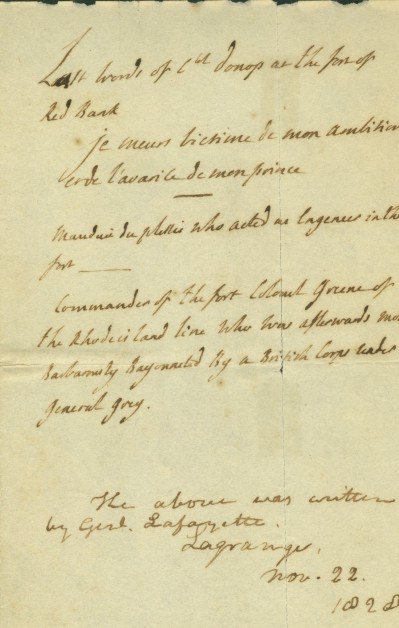 Last words of Cel donop at the fort of
Red Bank
je meurs victime de mon ambition
et de l'avarice de mon prince
Mauduit du plessis who acted as Ingeneer in the
fort
Commander of the fort Colonel Greene of
the Rhode island line who was afterwards most
Barbarously Bayonneted By a British Corps under
General Grey.
The above was written
by Genl. Lafayette.
Lagrange,
Nov. 22.
1828